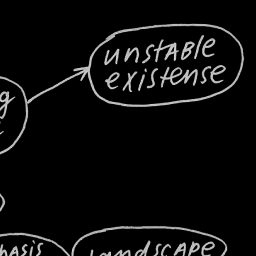 unstable
existense
landscape